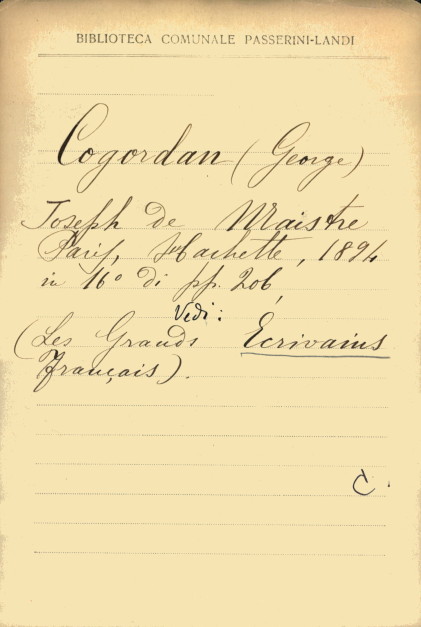 BIBLIOTECA COMUNALE PASSERINI-LANDI
Cogordan (George)
Joseph de Maistre
Paris, Hachette, 1894
in 16° di pp. 206,
Vedi:
(Les Grands Écrivains
français).
C.